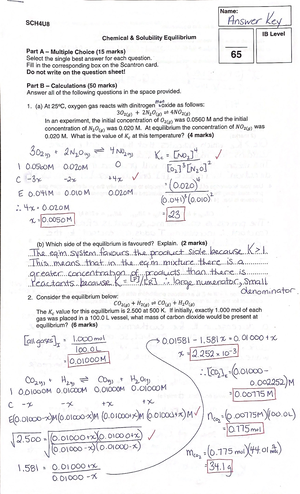 SCH4U8
Name:
Answer Key
IB Level
65
Chemical & Solubility Equilibrium
Part A – Multiple Choice (15 marks)
Select the single best answer for each question.
Fill in the corresponding box on the Scantron card.
Do not write on the question sheet!
Part B – Calculations (50 marks)
Answer all of the following questions in the space provided.
1. (a) At 25°C, oxygen gas reacts with dinitrogen oxide as follows:
3O₂(g) + 2N₂O(g) ⇌ 4NO₂(g)
In an experiment, the initial concentration of O₂(g) was 0.0560 M and the initial
concentration of N₂O(g) was 0.020 M. At equilibrium the concentration of NO₂(g) was
0.020 M. What is the value of Kc at this temperature? (4 marks)
3O₂(g) + 2N₂O(g) ⇌ 4NO₂(g)
I 0.0560M 0.020M 0
C -3x -2x +4x ✓
E 0.041M 0.010M 0.020M
∴ 4x = 0.020M
x = 0.0050M
Kc = [NO₂]⁴ ✓
[O₂]³[N₂O]²
= (0.020)⁴
(0.041)³(0.010)²
= 23
(b) Which side of the equilibrium is favoured? Explain. (2 marks)
The eq'm system favours the product side because K > 1.
This means that in the eq'm mixture there is a
greater concentration of products than there is
reactants because K = [P]/[R] ∴ large numerator, small
denominator.
2. Consider the equilibrium below:
CO₂(g) + H₂(g) ⇌ CO(g) + H₂O(g)
The Kc value for this equilibrium is 2.500 at 500 K. If initially, exactly 1.000 mol of each
gas was placed in a 100.0 L vessel, what mass of carbon dioxide would be present at
equilibrium? (6 marks)
[all gases]ᵢ = 1.000mol
100.0L
= 0.01000M
CO₂(g) + H₂(g) ⇌ CO(g) + H₂O(g)
I 0.01000M 0.01000M 0.01000M 0.01000M
C -x -x +x +x
E (0.01000-x)M (0.01000-x)M (0.01000+x)M (0.01000+x)M ✓
√2.500 = (0.01000+x)(0.01000+x) ✓
(0.01000-x)(0.01000-x)
1.581 = 0.01000+x
0.01000-x
0.01581 - 1.581x = 0.01000+x
x = 2.252 × 10⁻³ ✓
∴ [CO₂]e = (0.01000 -
0.002252)M
= 0.00775M
nCO₂ = (0.00775M)(100.0L)
= 0.775mol
mCO₂ = (0.775mol)(44.01 g/mol)
= 34.1g